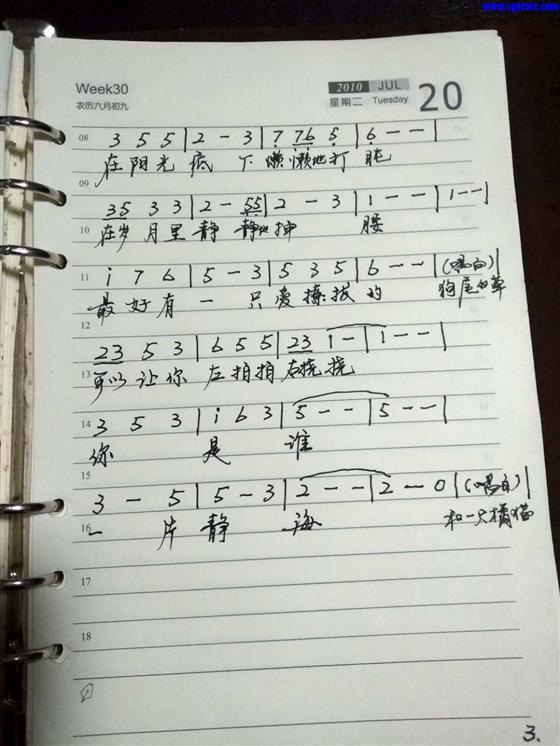 www.zgycwx.com
Week30
农历六月初九
2010 JUL
星期二 Tuesday
20
08 3 5 5 | 2 - 3 | 7 76 5 | 6 - - |
在阳光底下懒懒地打盹
09
35 3 3 | 2 - 55 | 2 - 3 | 1 - - | 1 - - |
10
在岁月里静静地抻腰
11 i 7 6 | 5 - 3 | 5 3 5 | 6 - - | (唱白) |
最好有一只爱撩拨的 狗尾巴草
12
23 5 3 | 6 5 5 | 23 1 - | 1 - - |
13
可以让你左拍拍右挠挠
14 3 5 3 | i 6 3 | 5 - - | 5 - - |
你是谁
15
3 - 5 | 5 - 3 | 2 - - | 2 - 0 | (唱白) |
16
一片静海 和一只橘猫
17
18
3.